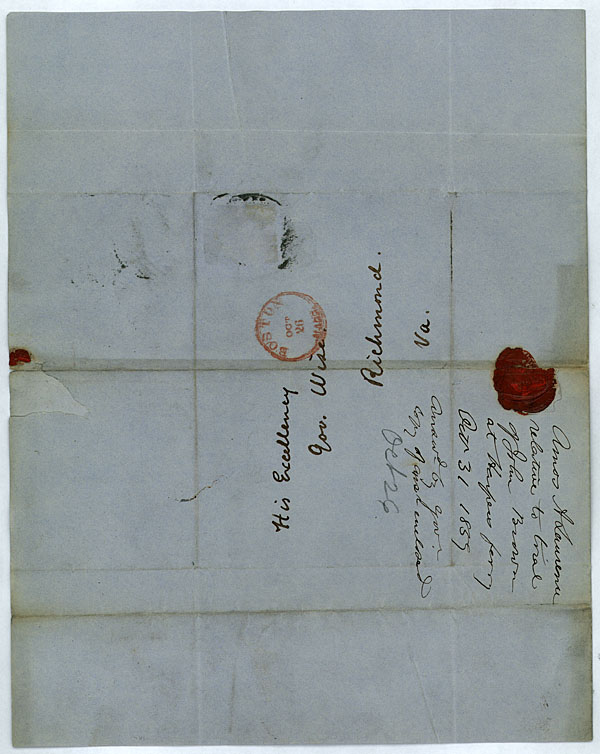 His Excellency
Gov. Wise.
Richmond.
Va.
BOSTON
OCT
26
MASS
Amos A Lawrence
relative to trial
of John Brown
at Harpers ferry
Oct 31 1859
Answd by Gov.
Copy of ans enclosed
Oct 26